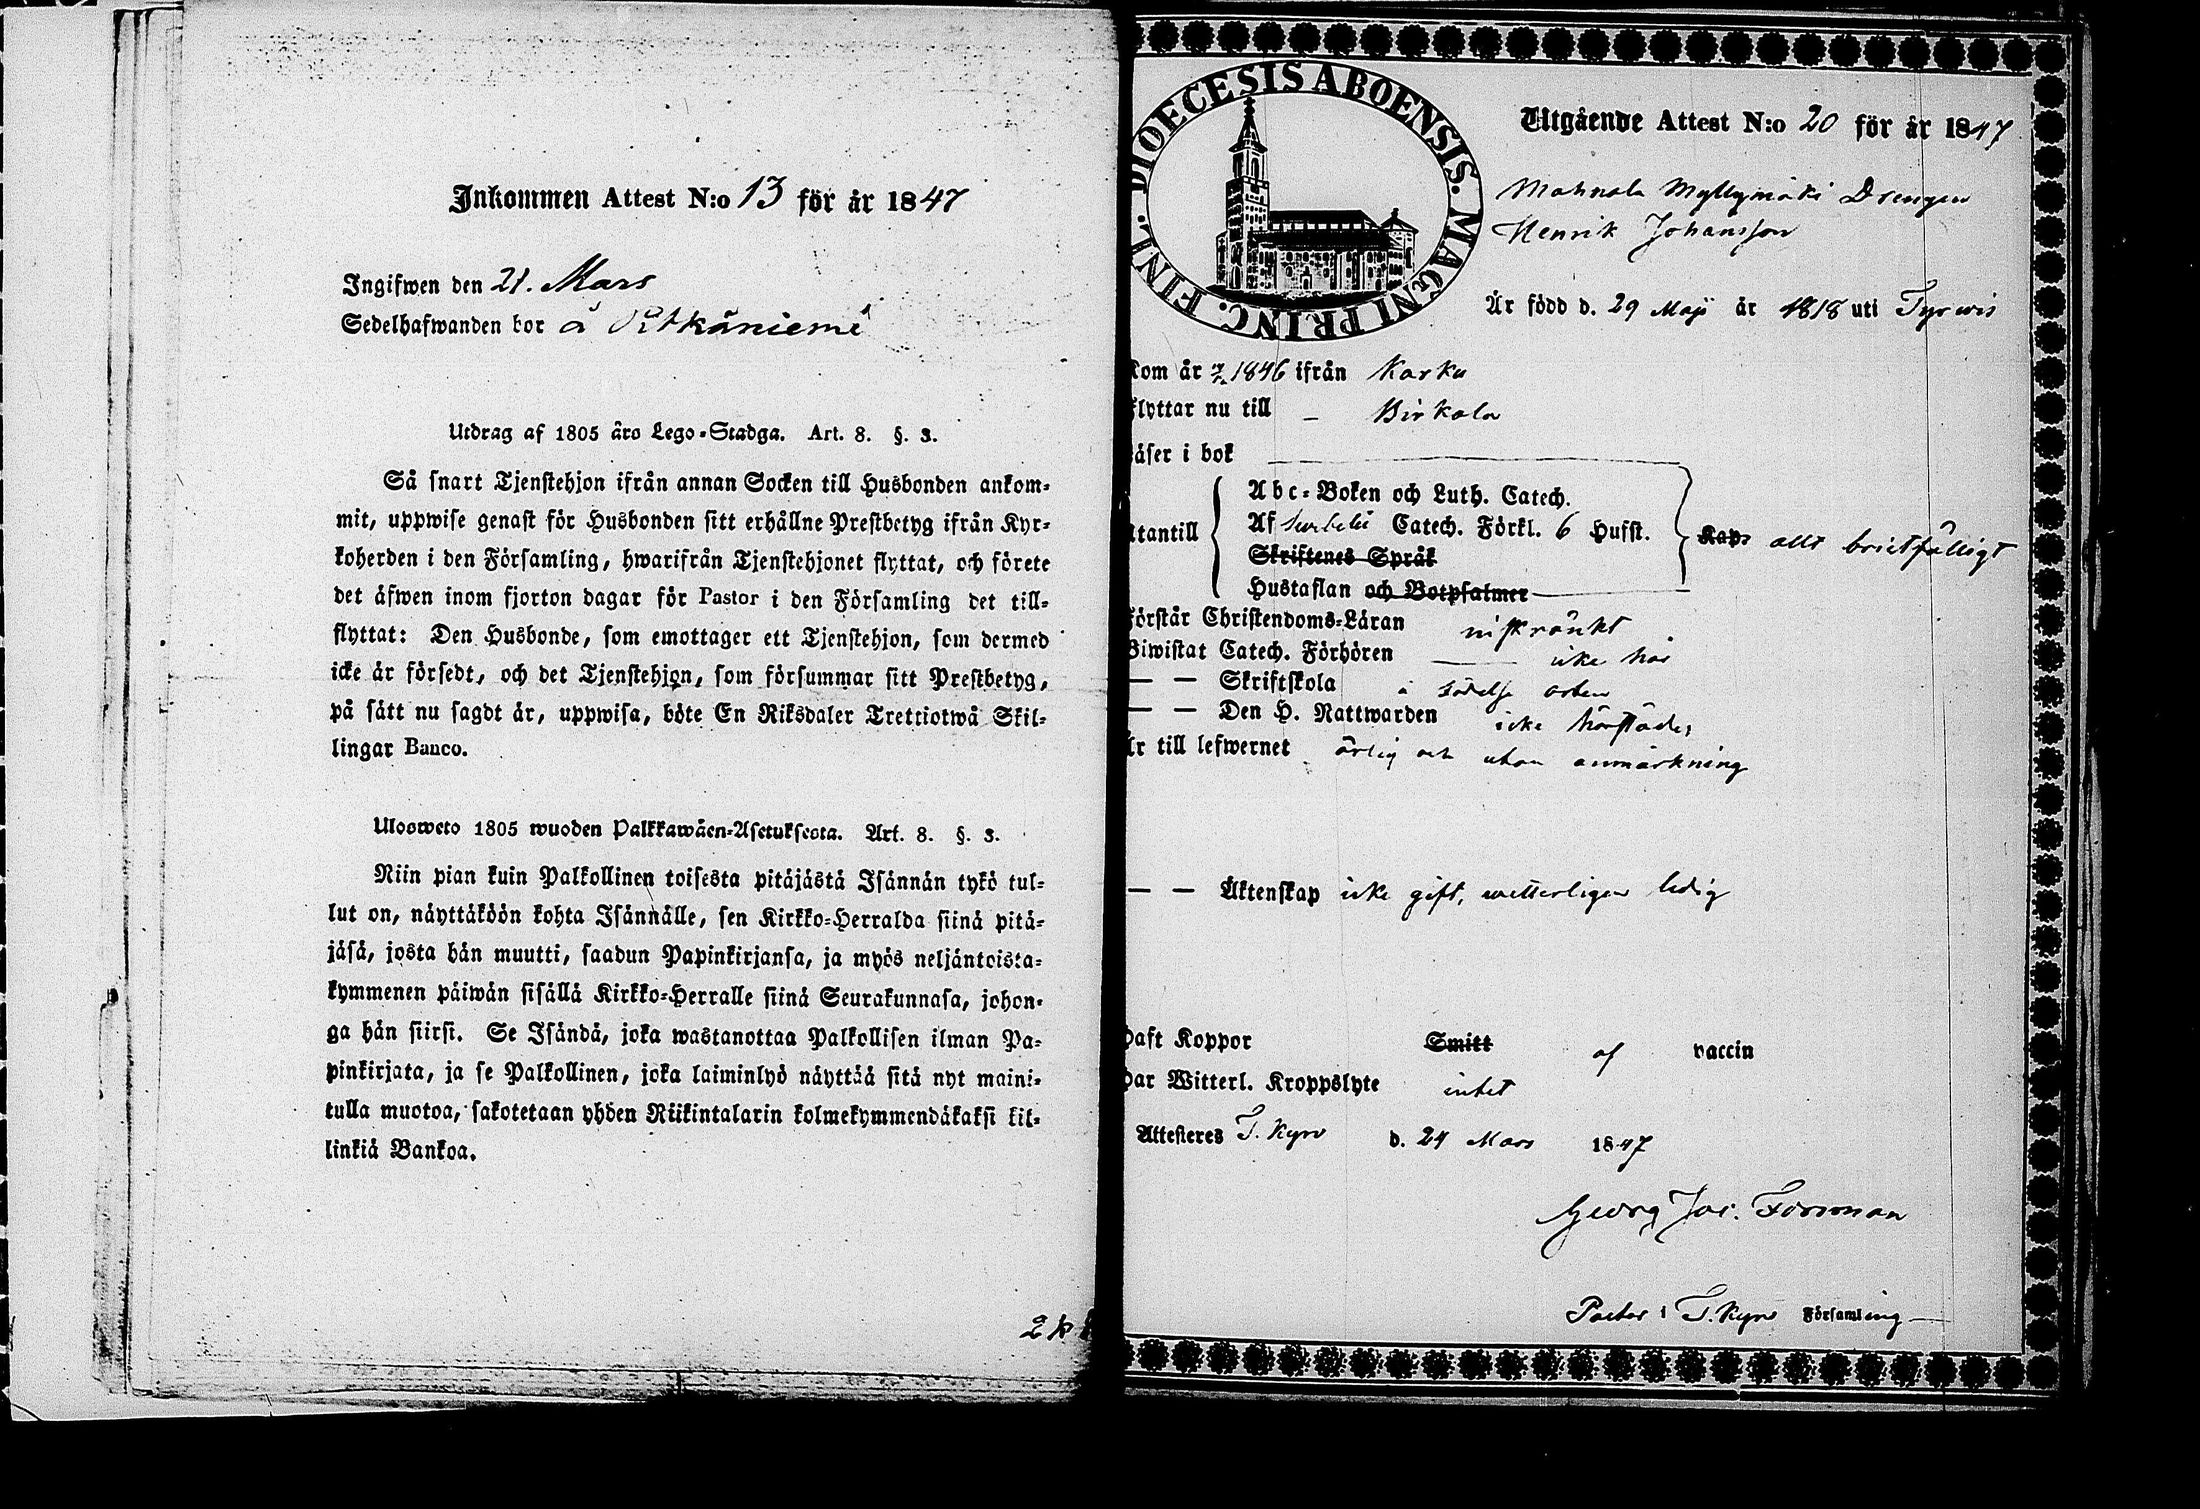 Inkommen Attest N:o 13 för år 1847
Ingifwen den 21. Mars
Sedelhafwanden bor å Pitkäniemi
Utdrag af 1805 års Lego-Stadga. Art. 8. §. 3.
Så snart Tjenstehjon ifrån annan Socken till Husbonden ankom-
mit, uppwise genast för Husbonden sitt erhållne Prestbetyg ifrån Kyr-
koherden i den Församling, hwarifrån Tjenstehjonet flyttat, och förete
det äfwen inom fjorton dagar för Pastor i den Församling det till-
flyttat: Den Husbonde, som emottager ett Tjenstehjon, som dermed
icke är försedt, och det Tjenstehjon, som försummar sitt Prestbetyg,
på sätt nu sagdt är, uppwisa, böte En Riksdaler Trettiotwå Skil-
lingar Banco.
Ulosweto 1805 wuoden Palkkawäen-Asetuksesta. Art. 8. §. 3.
Niin pian kuin Palkollinen toisesta pitäjästä Isännän tykö tul-
lut on, näyttäköön kohta Isännälle, sen Kirkko-Herralda siinä pitä-
jäsä, josta hän muutti, saadun Papinkirjansa, ja myös neljäntoista-
kymmenen päiwän sisällä Kirkko-Herralle siinä Seurakunnasa, johon-
ga hän siirsi. Se Isändä, joka wastanottaa Palkollisen ilman Pa-
pinkirjata, ja se Palkollinen, joka laiminlyö näyttää sitä nyt maini-
tulla muotoa, sakotetaan yhden Riikintalarin kolmekymmendäkaksi kil-
linkiä Bankoa.
DIOECESIS ABOENSIS. MAGNI PRINC. FINL.
Utgående Attest N:o 20 för år 1847
Mahnala Myllymäki Drengen
Henrik Johansson
Är född d. 29 Maji år 1818 uti Tyrwis
Kom år 1846 ifrån Karku
Flyttar nu till – Birkala
Läser i bok
Abc-Boken och Luth. Catech.
Utantill Af Catech. Förkl. 6 Hufst. Kap. allt bristfälligt
Skriftenes Språk
Hustaflan och Botpsalmer
Förstår Christendoms-Läran inskränkt
Biwistat Catech. Förhören — icke här
— — Skriftskola å födelse orten
— — Den H. Nattwarden icke härstädes
Är till lefwernet ärlig och utan anmärkning
— — Äktenskap icke gift, wetterligen ledig
Haft Koppor Smitt af vaccin
Har Witterl. Kroppslyte intet
Attesteres T. Kyro d. 24 Mars 1847
Georg Jac. Forsman
Pastor i T. Kyro Församling